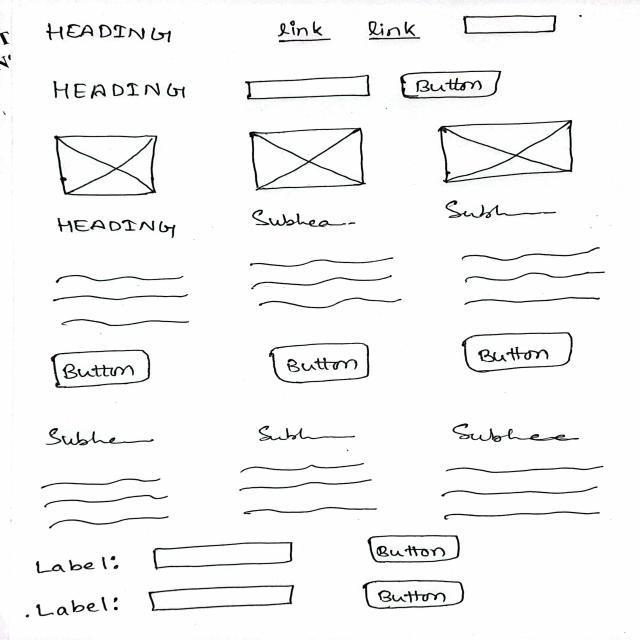 HEADING link link
HEADING Button
HEADING Subhea Subh
Button Button Button
Subhe Subh Subhee
Label: Button
.Label: Button